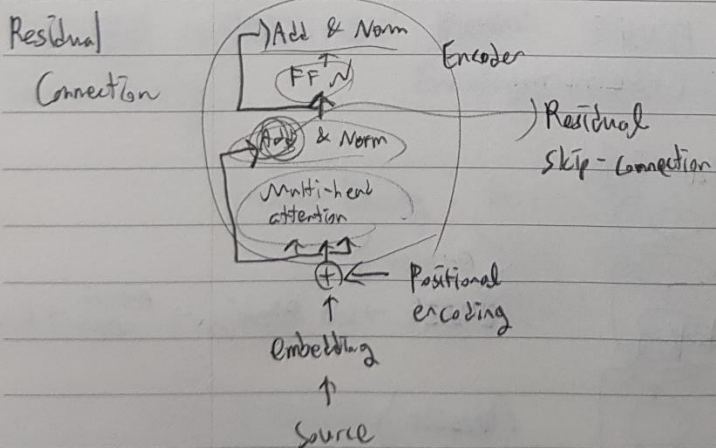 Residual
Connection
Add & Norm
Encoder
FFN
Add & Norm
Residual
Skip-Connection
Multi-head
attention
+
Positional
encoding
embedding
Source